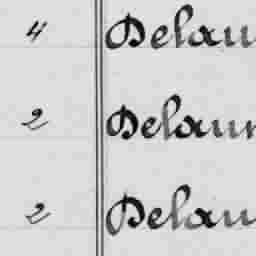 4 Delau
2 Delau
2 Delau